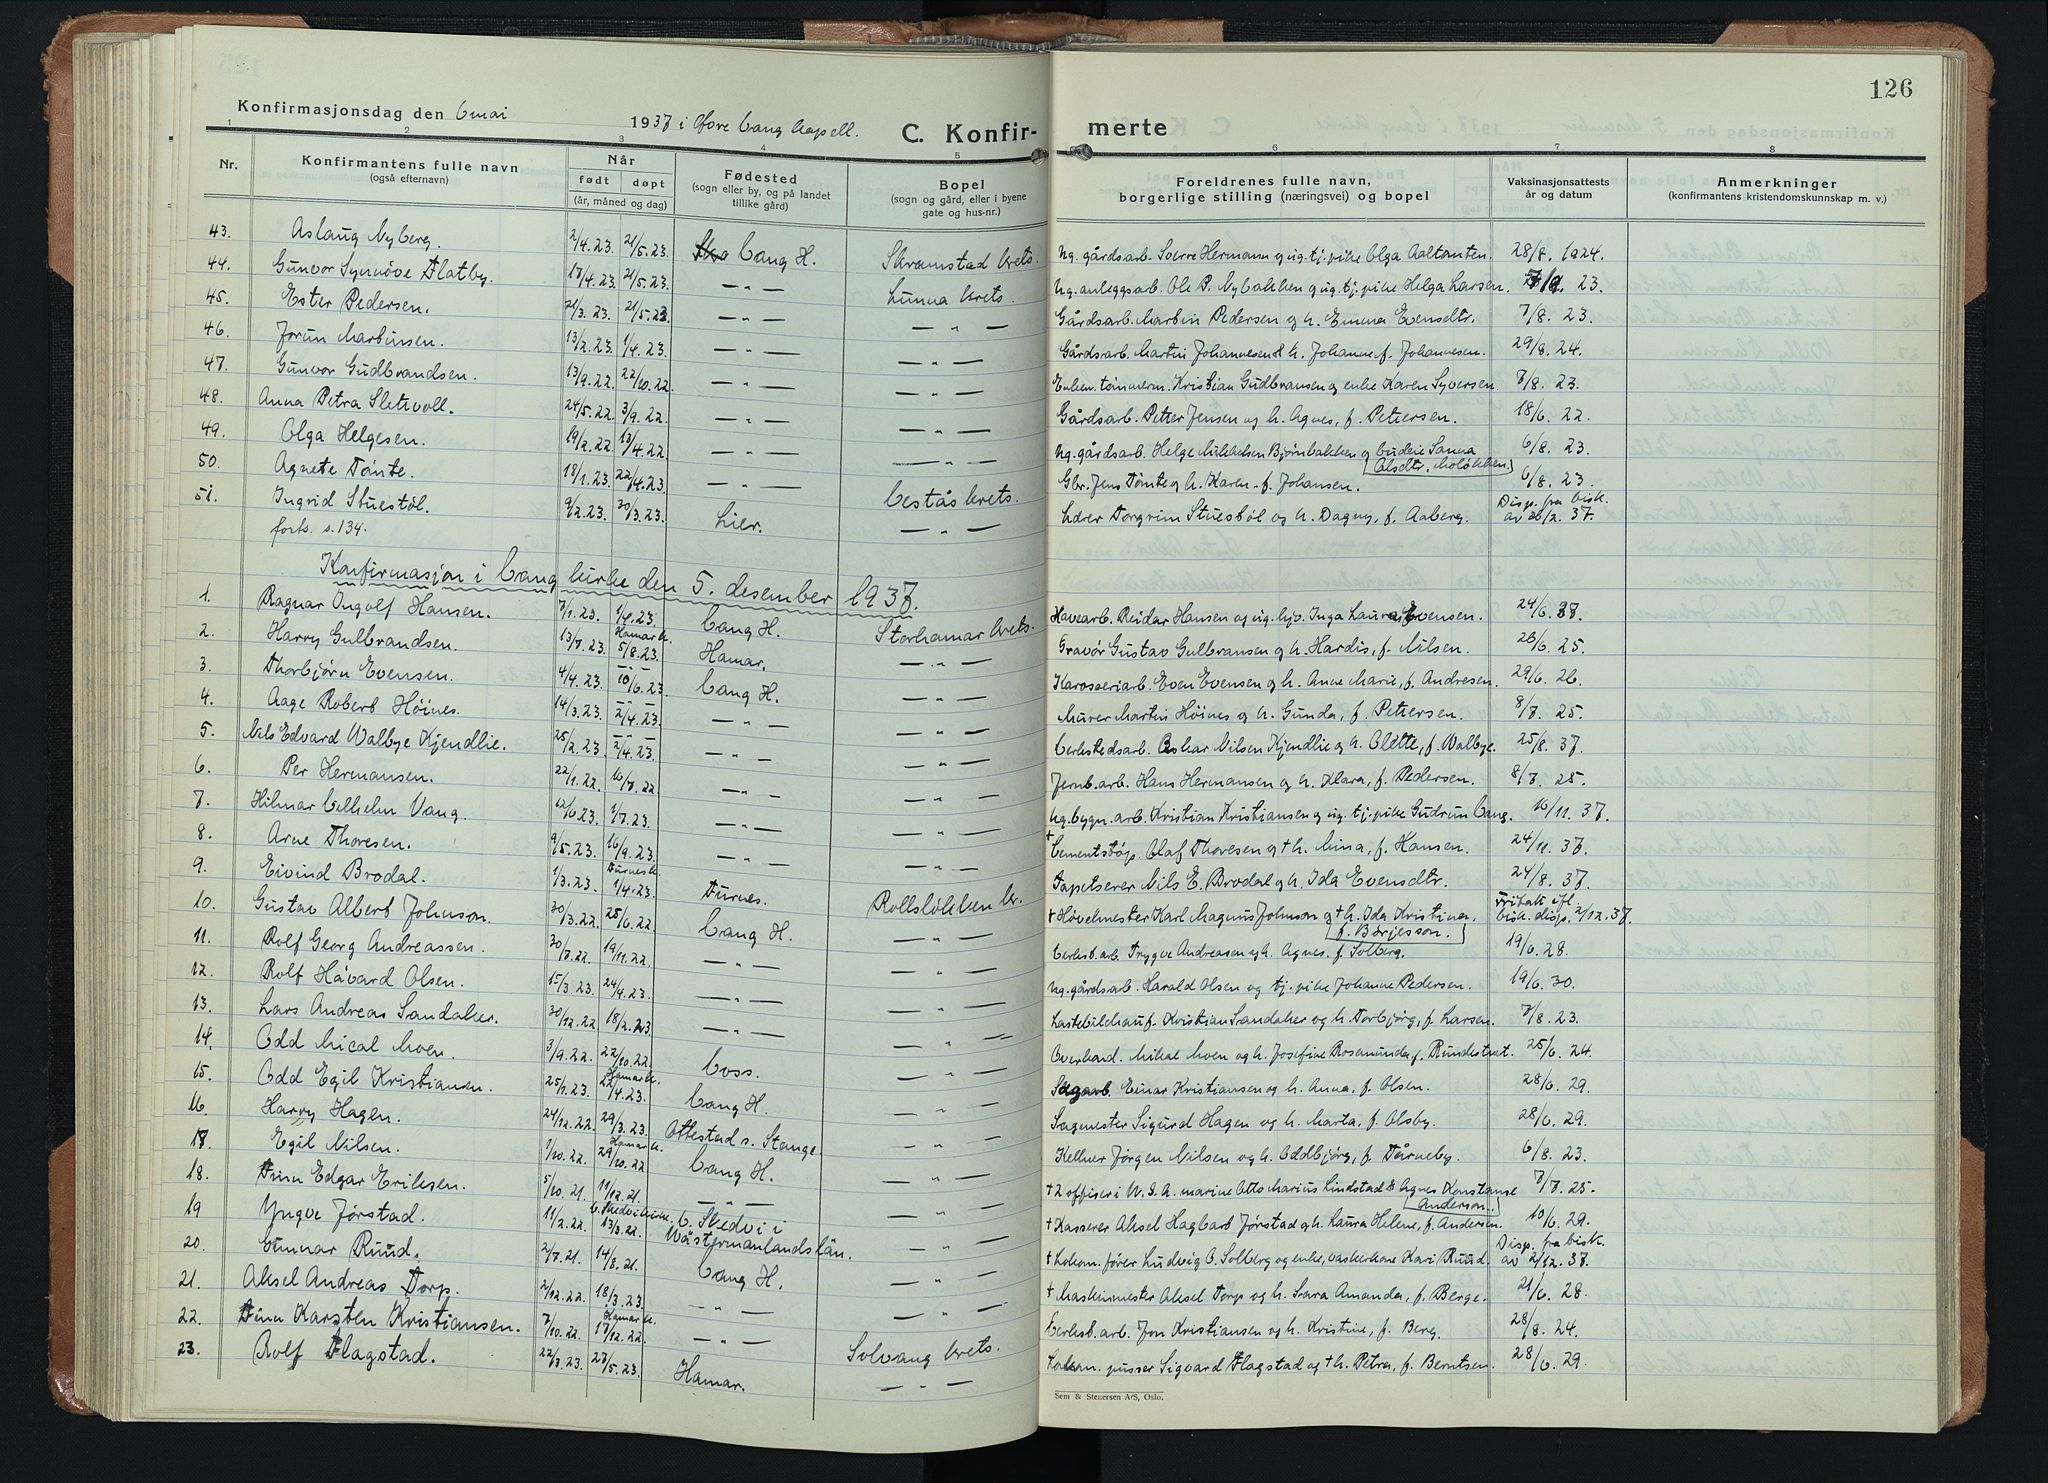 126
Konfirmasjonsdag den 6 mai 1937 i Øvre Vang kapell.
C. Konfir- merte
1 2 3 4 5 6 7 8
Nr.
Konfirmantens fulle navn
(også efternavn)
Når
født døpt
(år, måned og dag)
Fødested
(sogn eller by, og på landet
tillike gård)
Bopel
(sogn og gård, eller i byene
gate og hus-nr.)
Foreldrenes fulle navn,
borgerlige stilling (næringsvei) og bopel
Vaksinasjonsattests
år og datum
Anmerkninger
(konfirmantens kristendomskunnskap m. v.)
43. Aslaug Nyberg. 2/4.23. 21/5.23. Vang H. Skramstad krets. Ug. gårdsarb. Sverre Hermann og ug. tj. pike Olga Aaltanten. 28/8. 1924.
44. Gunvor Synnöve Flatby. 17/4.23. 21/5.23. — " — Lunna krets. Ug. anleggsarb. Ole P. Nybakken og ug. tj. pike Helga Larsen. 7/9. 23.
45. Ester Pedersen. 21/3.23. 21/5.23. — " — — " — Gårdsarb. Martin Pedersen og h. Emma Evensdtr. 7/8. 23.
46. Jorun Martinsen. 13/2.23. 1/4.23. — " — — " — Gårdsarb. Martin Johannesen & h. Johanne f. Johannesen. 29/8. 24.
47. Gunvor Gudbrandsen. 13/9.22. 22/10.22. — " — — " — Enkem. tömmerm. Kristian Gudbransen og enke Karen Syversen. 7/8. 23.
48. Anna Petra Sletvoll. 24/5.22. 3/9.22. — " — — " — Gårdsarb. Petter Jensen og h. Agnes, f. Pettersen. 18/6. 22.
49. Olga Helgesen. 19/2.22. 13/4.22. — " — — " — Ug. gårdsarb. Helge Mikkelsen Bjørnbakken og budeie Sanna
[Olsdtr. Moløkken.] 6/8. 23.
50. Agnete Tönte. 18/1.23. 22/4.23. — " — Vestås krets. Gbr. Jens Tönte og h. Karen f. Johansen. 6/8. 23.
51. Ingrid Stuestöl. 9/2.23. 30/3.23. Lier. — " — Lærer Torgrim Stuestöl og h. Dagny, f. Aaberg. Disp. fra bisk.
av 26/2. 37.
forts. s. 134.
Konfirmasjon i Vang kirke den 5. desember 1937.
1. Ragnar Ingolf Hansen. 7/1.23. 1/4.23. Vang H. Storhamar krets. Havearb. Reidar Hansen og ug. hjv. Inga Laura Evensen. 24/6. 37.
2. Harry Gulbrandsen. 13/7.23. Hamar k. 5/8.23. Hamar. — " — Gravör Gustav Gulbransen og h. Hardis, f. Nilsen. 26/6. 25.
3. Thorbjörn Evensen. 4/4.23. 10/6.23. Vang H. — " — Karosseriarb. Even Evensen og h. Anne Marie, f. Andresen. 29/6. 26.
4. Aage Robert Höines. 14/3.23. 2/4.23. — " — — " — Murer Martin Höines og h. Gunda, f. Pettersen. 8/7. 25.
5. Nils Edvard Walbye Kjendlie. 25/2.23. 2/4.23. — " — — " — Verkstedsarb. Oskar Nilsen Kjendlie og h. Olette, f. Walbye. 25/8. 37.
6. Per Hermansen. 22/1.22. 16/7.22. — " — — " — Jernb. arb. Hans Hermansen og h. Klara, f. Pedersen. 8/7. 25.
7. Hilmar Vilhelm Vang. 12/6.23. 1/7.23. — " — — " — Ug. bygn. arb. Kristian Kristiansen og ug. tj. pike Gudrun Vang. 16/11. 37.
8. Arne Thoresen. 9/5.23. 16/9.23. — " — — " — † Cementstöp. Olaf Thoresen og † h. Mina, f. Hansen. 24/11. 37.
9. Eivind Brodal. 1/3.23. Furnes k. 1/4.23. Furnes. Rollsløkken kr. Tapetserer Nils E. Brodal og h. Ida Evensdtr. 24/8. 37.
10. Gustav Albert Johnson. 30/3.22. 25/6.22. Vang H. — " — † Hövelmester Karl Magnus Johnson og † h. Ida Kristina,
[f. Børjesson.] Fritatt ifl.
bisk. disp. 2/12.37.
11. Rolf Georg Andreassen. 30/7.22. 19/11.22. — " — — " — Verkst. arb. Trygve Andreasen og h. Agnes, f. Solberg. 19/6. 28.
12. Rolf Håvard Olsen. 15/3.23. 24/4.23. — " — — " — Ug. gårdsarb. Harald Olsen og tj. pike Johanne Pedersen. 19/6. 30.
13. Lars Andreas Sandaker. 30/12.22. 18/2.23. — " — — " — Lastebilchauf. Kristian Sandaker og h. Torbjörg, f. Larsen. 7/8. 23.
14. Odd Mical Moen. 3/9.22. 22/10.22. Voss. — " — Overkond. Mikal Moen og h. Josefine Rosemunda, f. Rundestuet. 25/6. 24.
15. Odd Egil Kristiansen. 25/1.23. Hamar k. 22/4.23. Vang H. — " — Sagarb. Einar Kristiansen og h. Anna, f. Olsen. 28/6. 29.
16 Harry Hagen. 24/12.22. 29/3.23. Ottestad s. Stange. — " — Sagmester Sigurd Hagen og h. Marta, f. Alsby. 28/6. 29.
17. Egil Nilsen. 1/10.22. Hamar k. 29/10.22. Vang H. — " — Kellner Jørgen Nilsen og h. Oddbjörg, f. Tårneby. 6/8. 23.
18. Finn Edgar Eriksen. 5/10.21. 11/12.21. — " — — " — † 2 officer i U.S.A. marine Otto Marius Lindstad & Agnes Konstanse
[Anderson.] 7/7. 25.
19 Yngve Jørstad. 11/2.22. V. Skedvi kirke, 13/3.22. V. Skedvi i
Wästermanlandslän. — " — † Kasserer Aksel Hagbart Jørstad og h. Laura Helene, f. Andersen. 10/6. 29.
20. Gunnar Ruud. 2/7.21. 14/8.21. Vang H. — " — † Lokom. fører Ludvig O. Solberg og enke, vaskekone Kari Ruud. Disp. fra bisk.
av 2/12. 37.
21. Aksel Andreas Torp. 2/12.22. 18/3.23. — " — — " — † Maskinmester Aksel Torp og h. Sara Amanda, f. Berge. 21/6. 28.
22. Finn Karsten Kristiansen. 7/10.22. Hamar k. 17/12.22. — " — Solvang krets. Verkst. arb. Jon Kristiansen og h. Kristine, f. Berg. 28/8. 24.
23. Rolf Flagstad. 22/3.23. 27/5.23. Hamar. — " — Lokom. pusser Sigvard Flagstad og † h. Petra, f. Berntsen. 28/6. 29.
Sem & Stenersen A/S, Oslo.